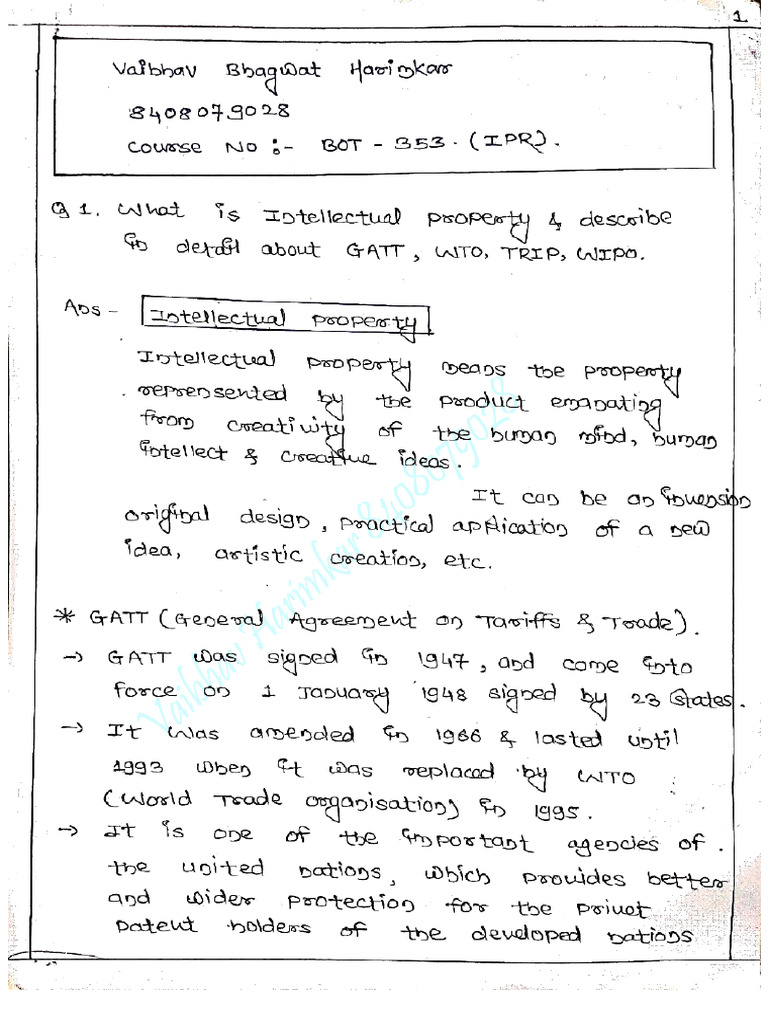 1
Vaibhav Bhagwat Harimkar
8408079028
Course No :- BOT - 353. (IPR).
Q 1. What is Intellectual property & describe
in detail about GATT, WTO, TRIP, WIPO.
Ans - Intellectual property
Intellectual property means the property
reprensented by the product emanating
from creativity of the human mind, human
intellect & creative ideas.
It can be an invension
original design, practical application of a new
idea, artistic creation, etc.
* GATT (General Agreement on Tariffs & Trade).
→ GATT was signed in 1947, and come into
force on 1 January 1948 signed by 23 States.
→ It was amended in 1966 & lasted until
1993 when it was replaced by WTO
(World Trade organisation) in 1995.
→ It is one of the important agencies of.
the united nations, which provides better
and wider protection for the privet
patent holders of the developed nations
Vaibhav Harimkar 8408079028